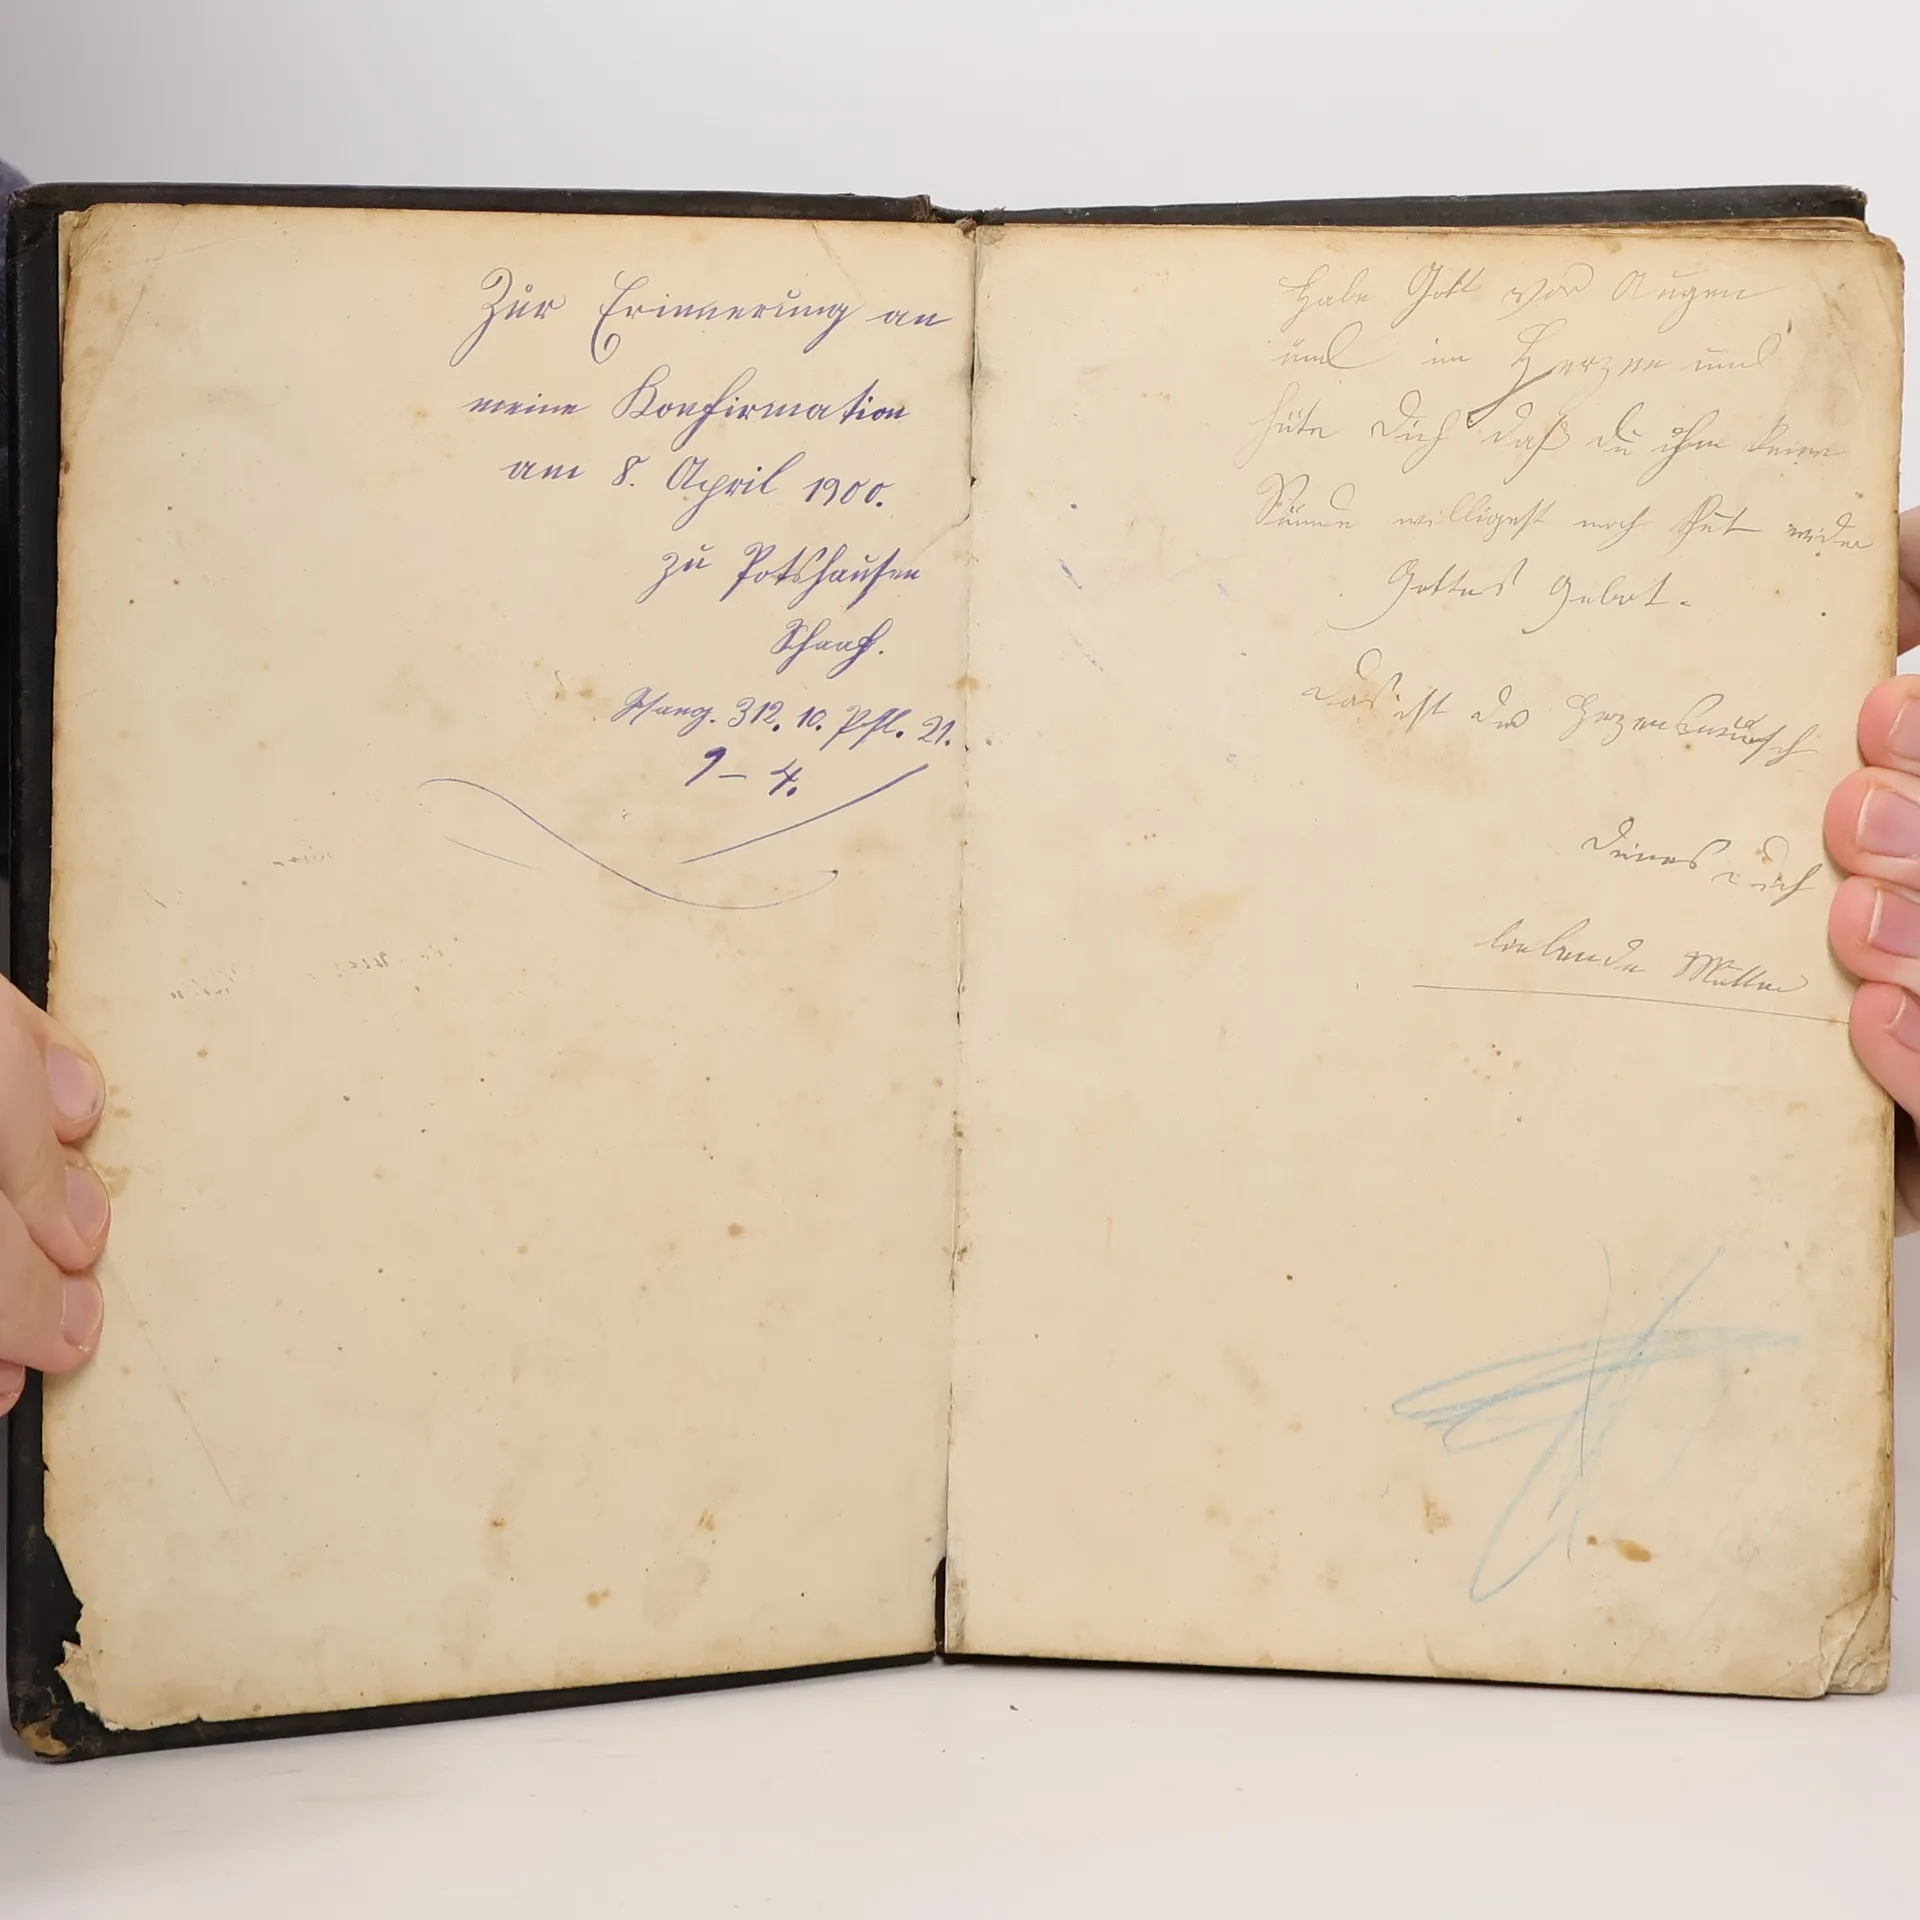 Zur Erinnerung an
meine Konfirmation
am 8. April 1900.
zu Potshausen
Schaaf.
312. 10. Psl. 21.
9 – 4.
Habe Gott vor Augen
und im Herzen und
hüte Dich daß du ihm keine
Sünde willigest noch thut wider
Gottes Gebot.
Das ist der Herzenswunsch
Deines Dich
liebende Mutter